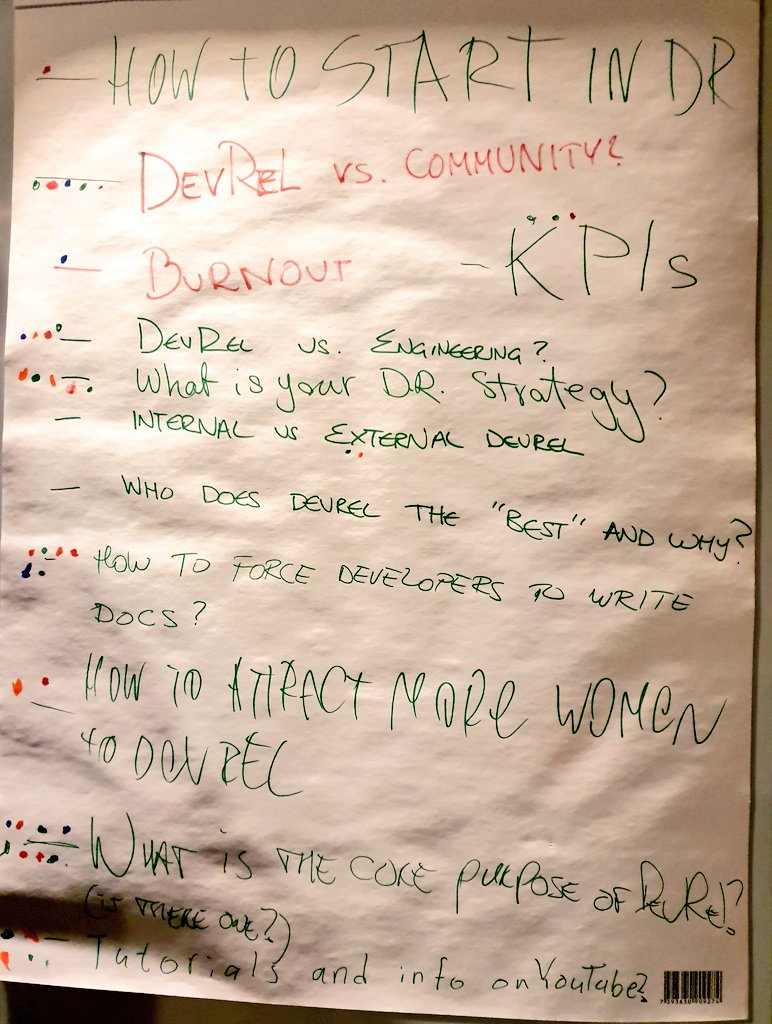 - HOW TO START IN DR
- DEVREL VS. COMMUNITY?
- BURNOUT
- KPIs
- DEVREL VS. ENGINEERING?
- What is your D.R. Strategy?
- INTERNAL VS EXTERNAL DEVREL
- WHO DOES DEVREL THE "BEST" AND WHY?
- HOW TO FORCE DEVELOPERS TO WRITE
DOCS?
- HOW TO ATTRACT MORE WOMEN
TO DEVREL
- WHAT IS THE CORE PURPOSE OF DevRel?
(IS THERE ONE?)
- Tutorials and info on YouTube?
7 393630 909274